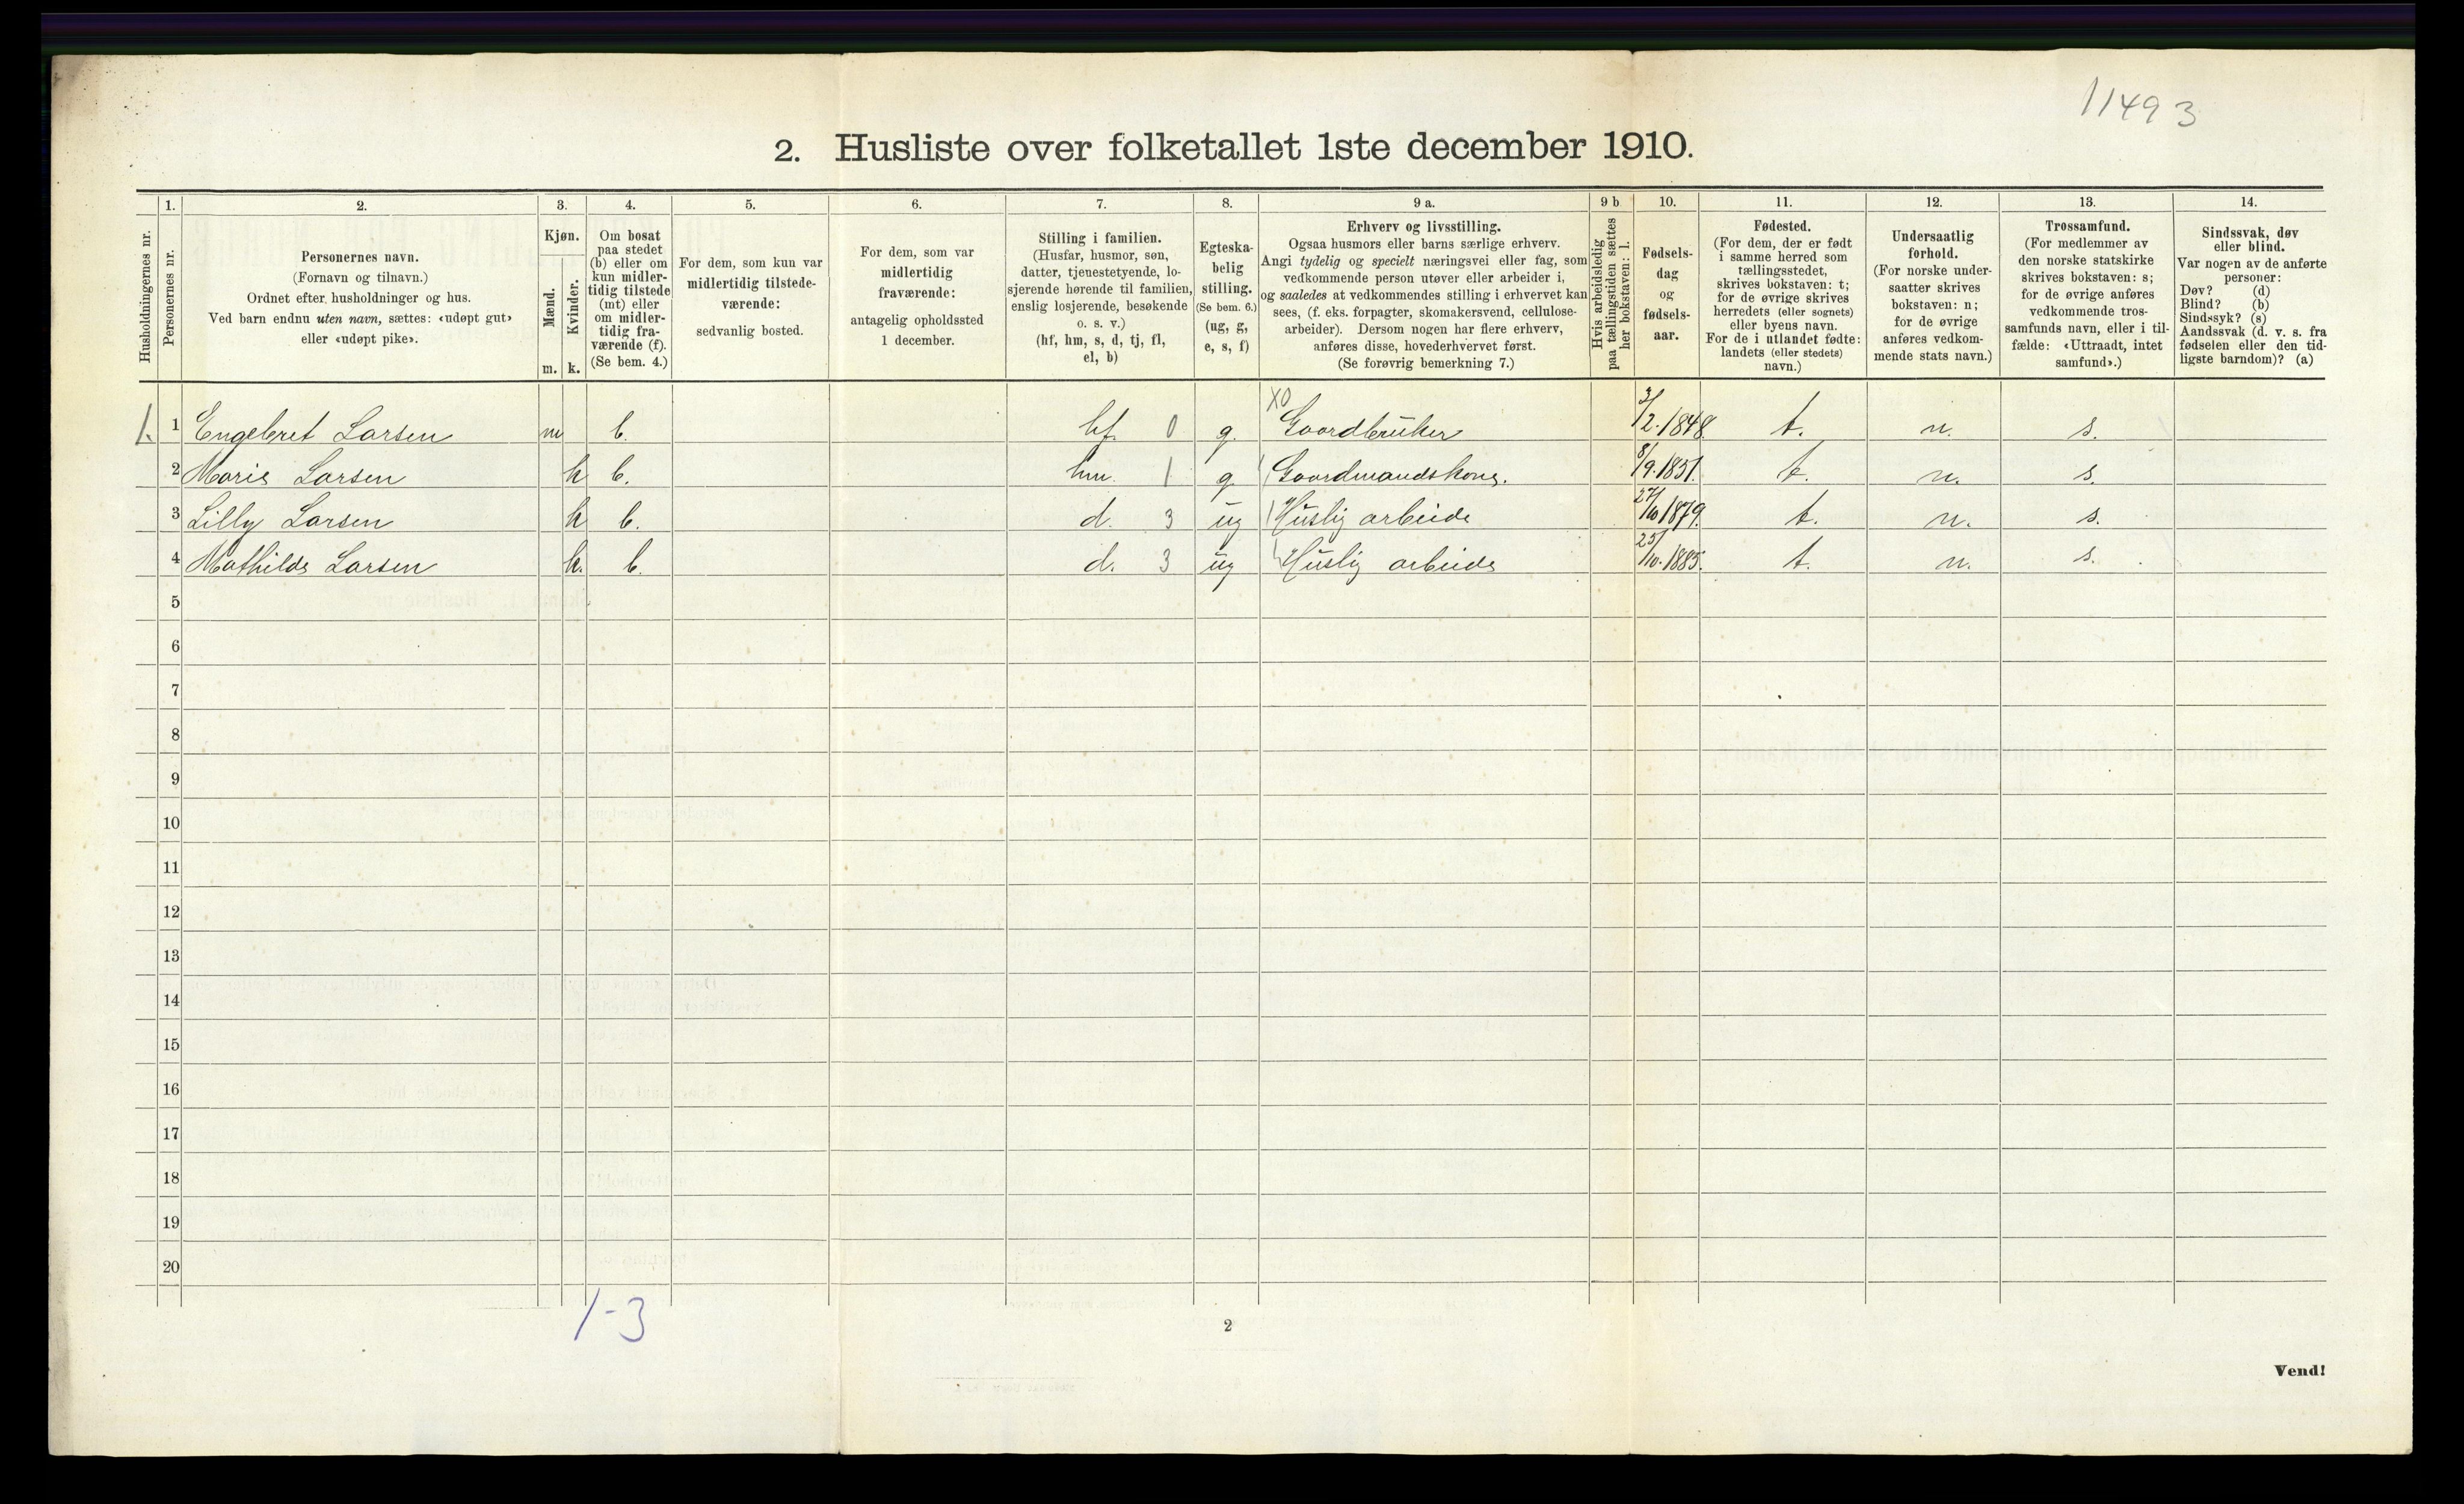 11493
2. Husliste over folketallet 1ste december 1910.
1. 2. 3. 4. 5. 6. 7. 8. 9 a. 9 b 10. 11. 12. 13. 14.
Husholdningernes nr.
Personernes nr.
Personernes navn.
(Fornavn og tilnavn.)
Ordnet efter husholdninger og hus.
Ved barn endnu uten navn, sættes: «udøpt gut»
eller «udøpt pike».
Kjøn.
Mænd.
Kvinder.
m. k.
Om bosat
paa stedet
(b) eller om
kun midler-
tidig tilstede
(mt) eller
om midler-
tidig fra-
værende (f).
(Se bem. 4.)
For dem, som kun var
midlertidig tilstede-
værende:
sedvanlig bosted.
For dem, som var
midlertidig
fraværende:
antagelig opholdssted
1 december.
Stilling i familien.
(Husfar, husmor, søn,
datter, tjenestetyende, lo-
sjerende hørende til familien,
enslig losjerende, besøkende
o. s. v.)
(hf, hm, s, d, tj, fl,
el, b)
Egteska-
belig
stilling.
(Se bem. 6.)
(ug, g,
e, s, f)
Erhverv og livsstilling.
Ogsaa husmors eller barns særlige erhverv.
Angi tydelig og specielt næringsvei eller fag, som
vedkommende person utøver eller arbeider i,
og saaledes at vedkommendes stilling i erhvervet kan
sees, (f. eks. forpagter, skomakersvend, cellulose-
arbeider). Dersom nogen har flere erhverv,
anføres disse, hovederhvervet først.
(Se forøvrig bemerkning 7.)
Hvis arbeidsledig
paa tællingstiden sættes
her bokstaven: l.
Fødsels-
dag
og
fødsels-
aar.
Fødested.
(For dem, der er født
i samme herred som
tællingsstedet,
skrives bokstaven: t;
for de øvrige skrives
herredets (eller sognets)
eller byens navn.
For de i utlandet fødte:
landets (eller stedets)
navn.)
Undersaatlig
forhold.
(For norske under-
saatter skrives
bokstaven: n;
for de øvrige
anføres vedkom-
mende stats navn.)
Trossamfund.
(For medlemmer av
den norske statskirke
skrives bokstaven: s;
for de øvrige anføres
vedkommende tros-
samfunds navn, eller i til-
fælde: «Uttraadt, intet
samfund».)
Sindssvak, døv
eller blind.
Var nogen av de anførte
personer:
Døv? (d)
Blind? (b)
Sindssyk? (s)
Aandssvak (d. v. s. fra
fødselen eller den tid-
ligste barndom)? (a)
X0
1. 1 Engebret Larsen m b. hf. 0 g. Gaardbruker 3/2.1848. t. n. s.
2 Marie Larsen k b. hm. 1 g Gaardmandskone. 8/9.1851. t. n. s.
3 Lilly Larsen k b. d. 3 ug Huslig arbeide 27/10 1879. t. n. s.
4 Mathilde Larsen k. b. d. 3 ug Huslig arbeide 25/10.1885. t. n. s.
5
6
7
8
9
10
11
12
13
14
15
16
17
18
19
20
1-3
2
Vend!